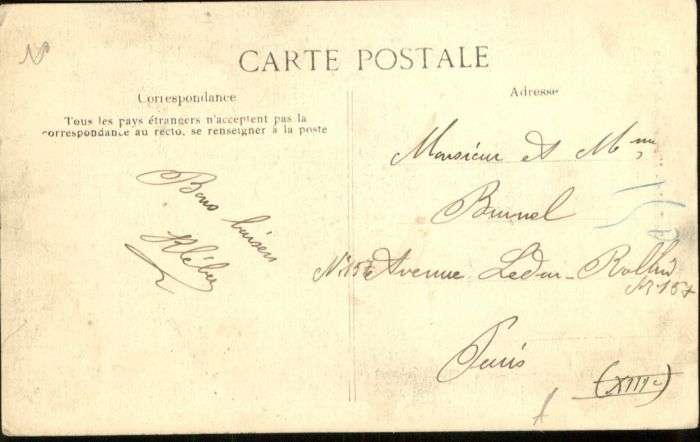 CARTE POSTALE
Correspondance
Tous les pays étrangers n'acceptent pas la
correspondance au recto, se renseigner à la poste
Adresse
Bons baisers
Kléber
Monsieur et Mme
Brunel
Avenue Ledru-Rollin
No 157
Paris
(XIIIe)